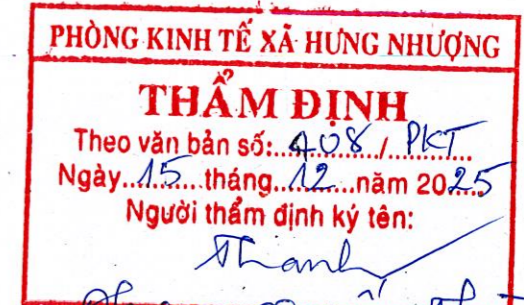 PHÒNG KINH TẾ XÃ HƯNG NHƯỢNG
THẨM ĐỊNH
Theo văn bản số:...408.../..PKT...
Ngày..15...tháng..12...năm 2025
Người thẩm định ký tên:
Thanh